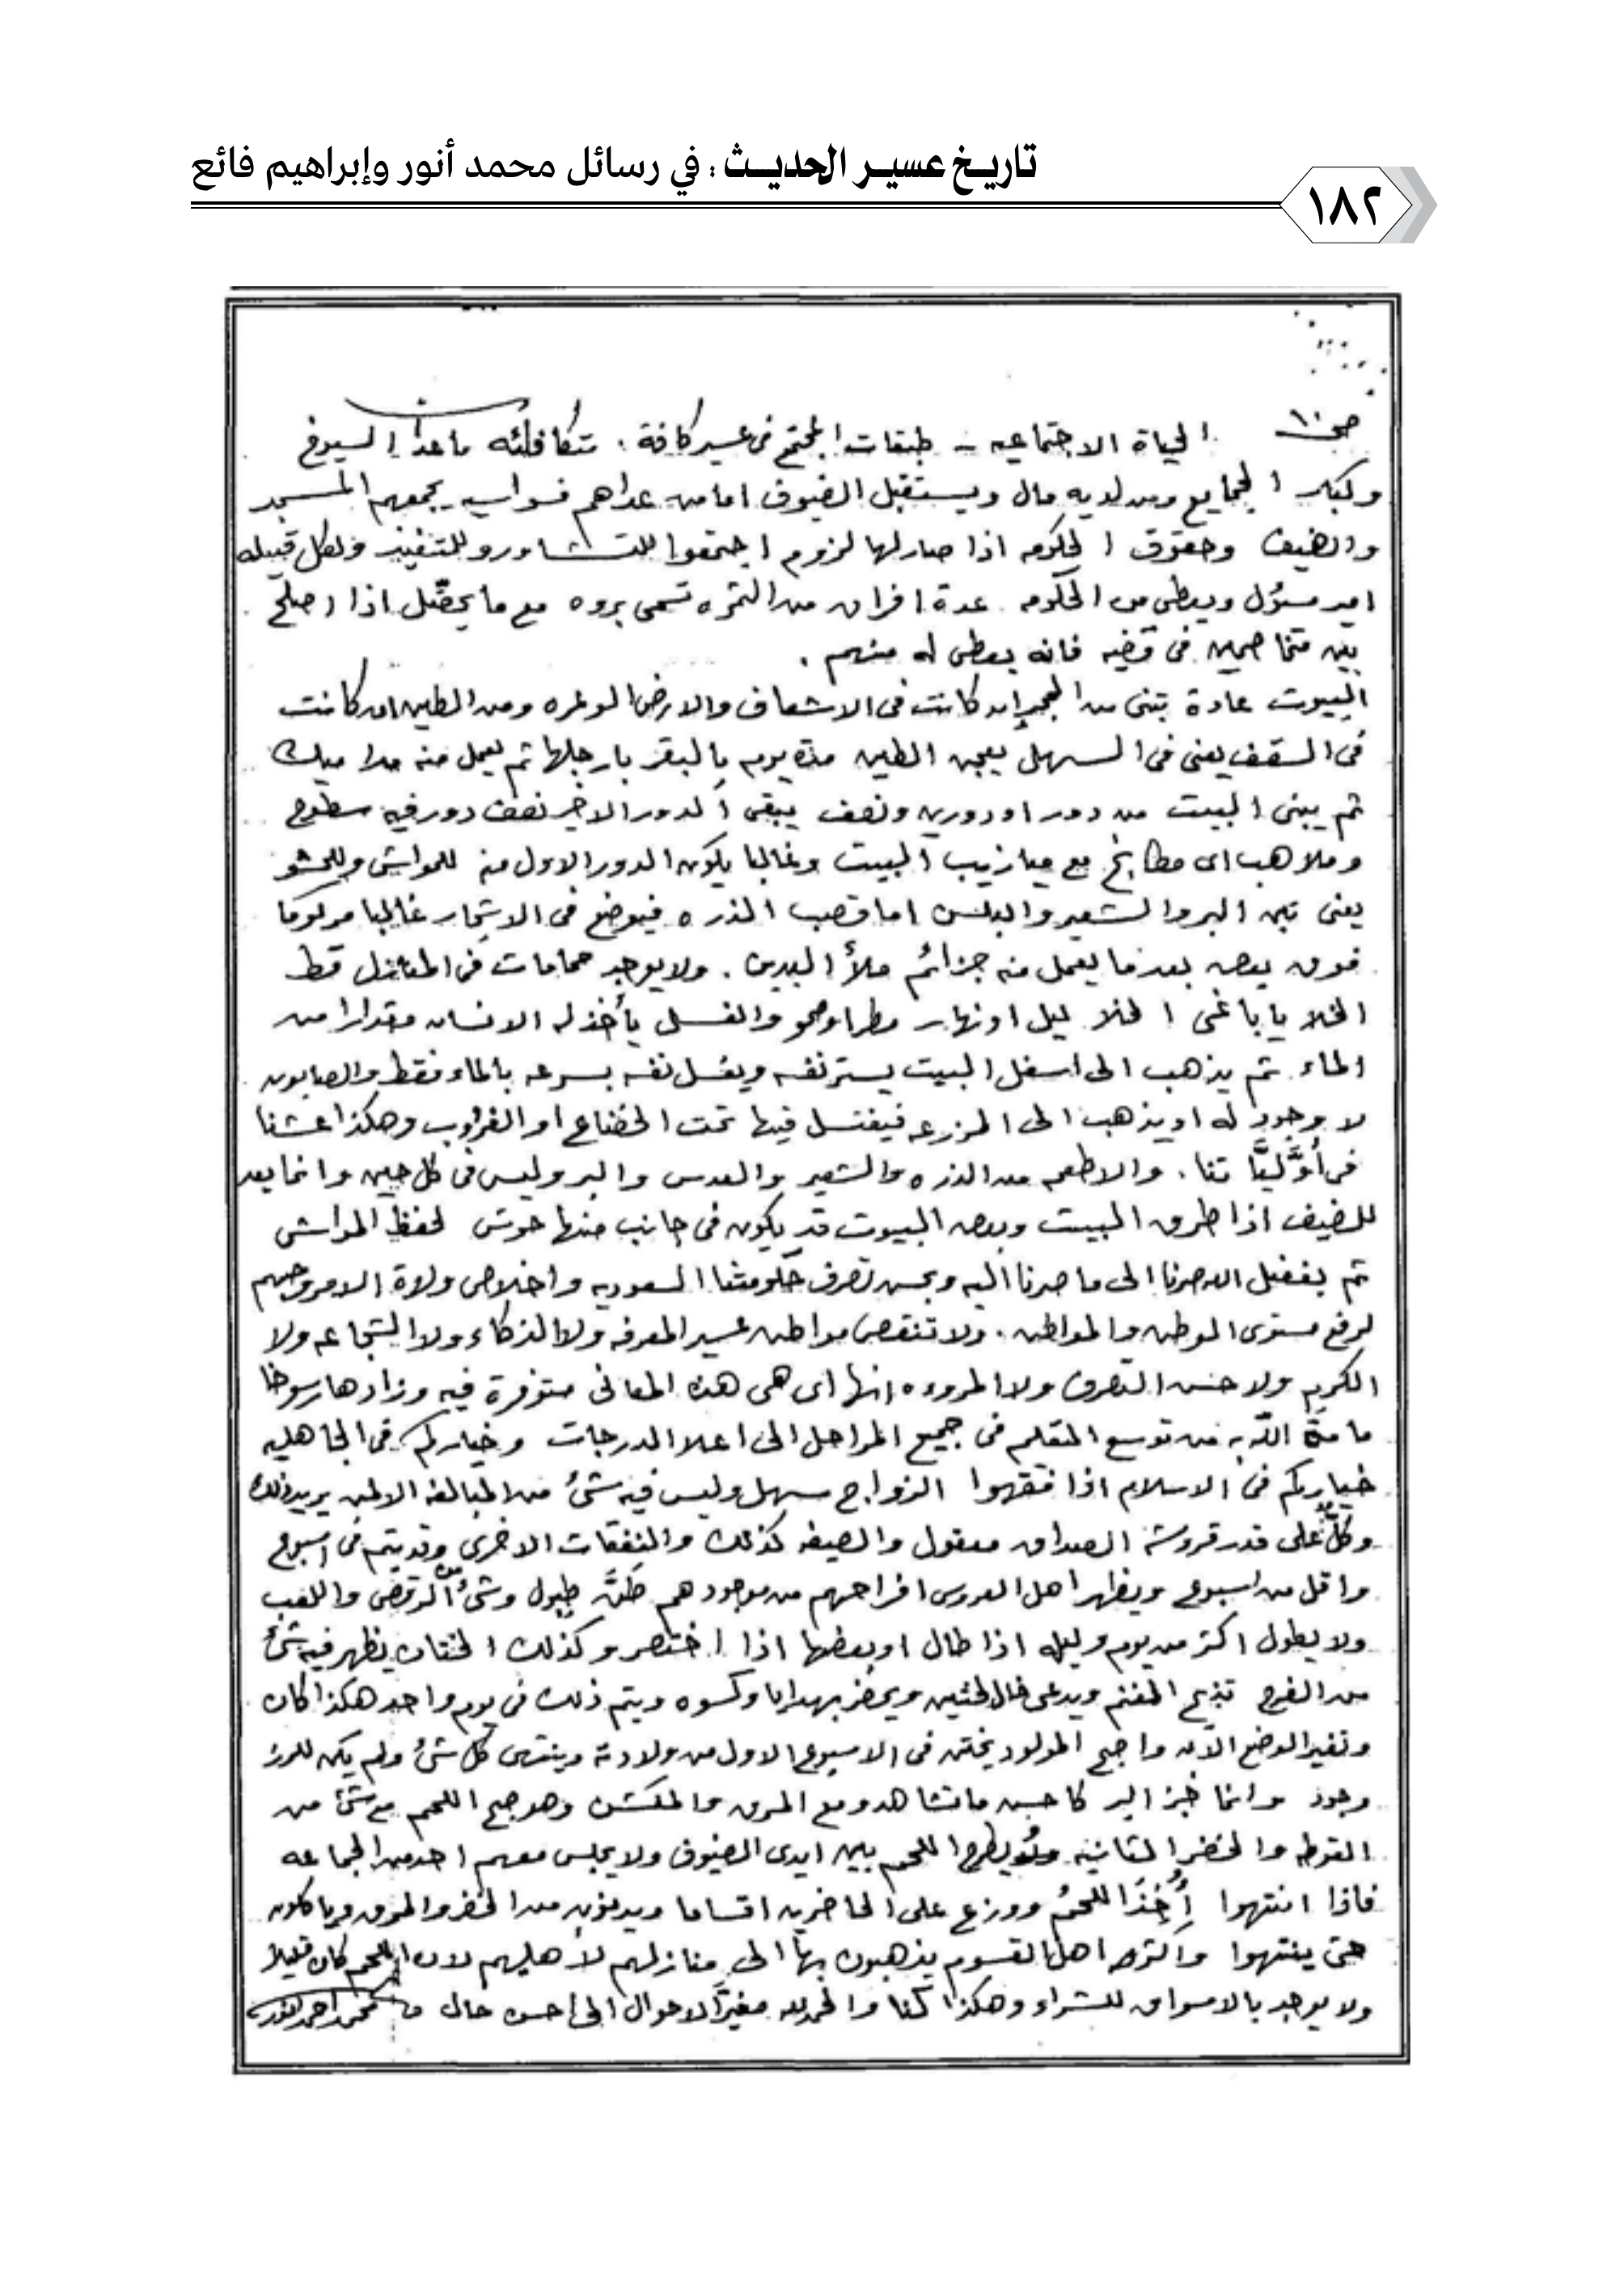 تاريخ عسير الحديث : في رسائل محمد أنور وإبراهيم فائع
١٨٢
الحياة الاجتماعيه - طبقات المجتمع فى عسير كافة . متكافئه ماعدا الشيوخ
وكبار ومن لديه مال ويستقبل الضيوف اما من عداهم فسواسيه يجمعهم المسجد
والضيف وحقوق الحكومه اذا صار لها لزوم اجتمعوا للتشاور وللتنفيذ ولكل قبيله
امير مسؤل ويعطى من الحكومه عدة افراق من الثمره تسمى بروه مع ما يحصّل اذا اصلح
بين متخاصمين فى قضيه فانه يعطى له منهم .
البيوت عادة تبنى من الحجر ان كانت فى الاشعاف والارض الوعره ومن الطين ان كانت
فى السقف يعنى فى السهل يعجن الطين مدة يوم بالبقر بارجلها ثم يعمل منه مداميك
ثم يبنى البيت من دور او دورين ونصف يبقى الدور الاخير نصف دور فيه سطوح
وملاهب اى مطابخ مع ميازيب البيت وغالبا يكون الدور الاول منه للمواشى وللحشو
يعنى تبن البر والشعير والبلس اما قصب الذره فيوضع فى الاشجار غالبا مركوما
فوق بعض بعد ما يعمل منه جزائم ملأ اليدين . ولا يوجد حمامات فى المنازل قط
الخلا يا باغى الخلا ليل او نهار مطر او صحو والغسل يأخذ له الانسان مقدارا من
الماء ثم يذهب الى اسفل البيت يستر نفسه ويغسل نفسه بسرعه بالماء فقط والصابون
لا وجود له او يذهب الى المزرعه فيغتسل فيها تحت او الغروب وهكذا عشنا
فى أوَّليَّاتنا . والاطعمه من الذره والشعير والعدس والبر وليس فى كل حين وانما يعد
للضيف اذا طرق البيت وبعض البيوت قد يكون فى جانب منها حوش لحفظ المواشى
ثم بفضل الله صرنا الى ما صرنا اليه وبحسن تصرف حكومتنا السعوديه واخلاص ولاة الامر وحبهم
لرفع مستوى الموطن والمواطن . ولا تنقص مواطن عسير المعرفه ولا الذكاء ولا الشجاعه ولا
الكرم ولا حسن التصرف ولا المروءه انها اى هى هذه المعانى متوفرة فيه وزادها رسوخا
ما منّ الله به من توسع التعليم فى جميع المراحل الى اعلا الدرجات وخياركم فى الجاهليه
خياركم فى الاسلام اذا فقهوا الزواج سهل وليس فيه شئ من المبالغه الا لمن يريد ذلك
وكلٌ على قدر قروشه الصداق معقول والضيفه كذلك والنفقات الاخرى وقد يتم فى اسبوع
واقل من اسبوع ويظهر اهل العروس افراحهم من موجودهم طبول وشئ من الرقص واللعب
ولا يطول اكثر من يوم وليله اذا طال او بعضها اذا اختصر وكذلك الختان يظهر فيه شئ
من الفرح تذبح الغنم ويدعى خال الختين ويحضر بهدايا وكسوه ويتم ذلك فى يوم واحد هكذا كان
وتغير الوضع الآن واصبح المولود يختن فى الاسبوع الاول من ولادته وينتهى كل شئ ولم يكن للرز
وجود وانما خبز البر كاحسن ما تشاهد ومع المرق والمكشن وهو صبح اللحم مع شئ من
القوطه والخضر الثانيه يطرح اللحم بين ايدى الضيوف ولا يجلس معهم احد من الجماعه
فاذا انتهوا أُخِذَ اللحمُ ووزع على الحاضرين اقساما من الخضر والمرق
حتى ينتهوا واكثر اهل القسوم يذهبون بها الى منازلهم لأهليهم لان اللحم كان قليلا
ولا يوجد بالاسواق للشراء وهكذا كنا والحمد لله مغيّر الاحوال الى احسن حال محمد احمد انور